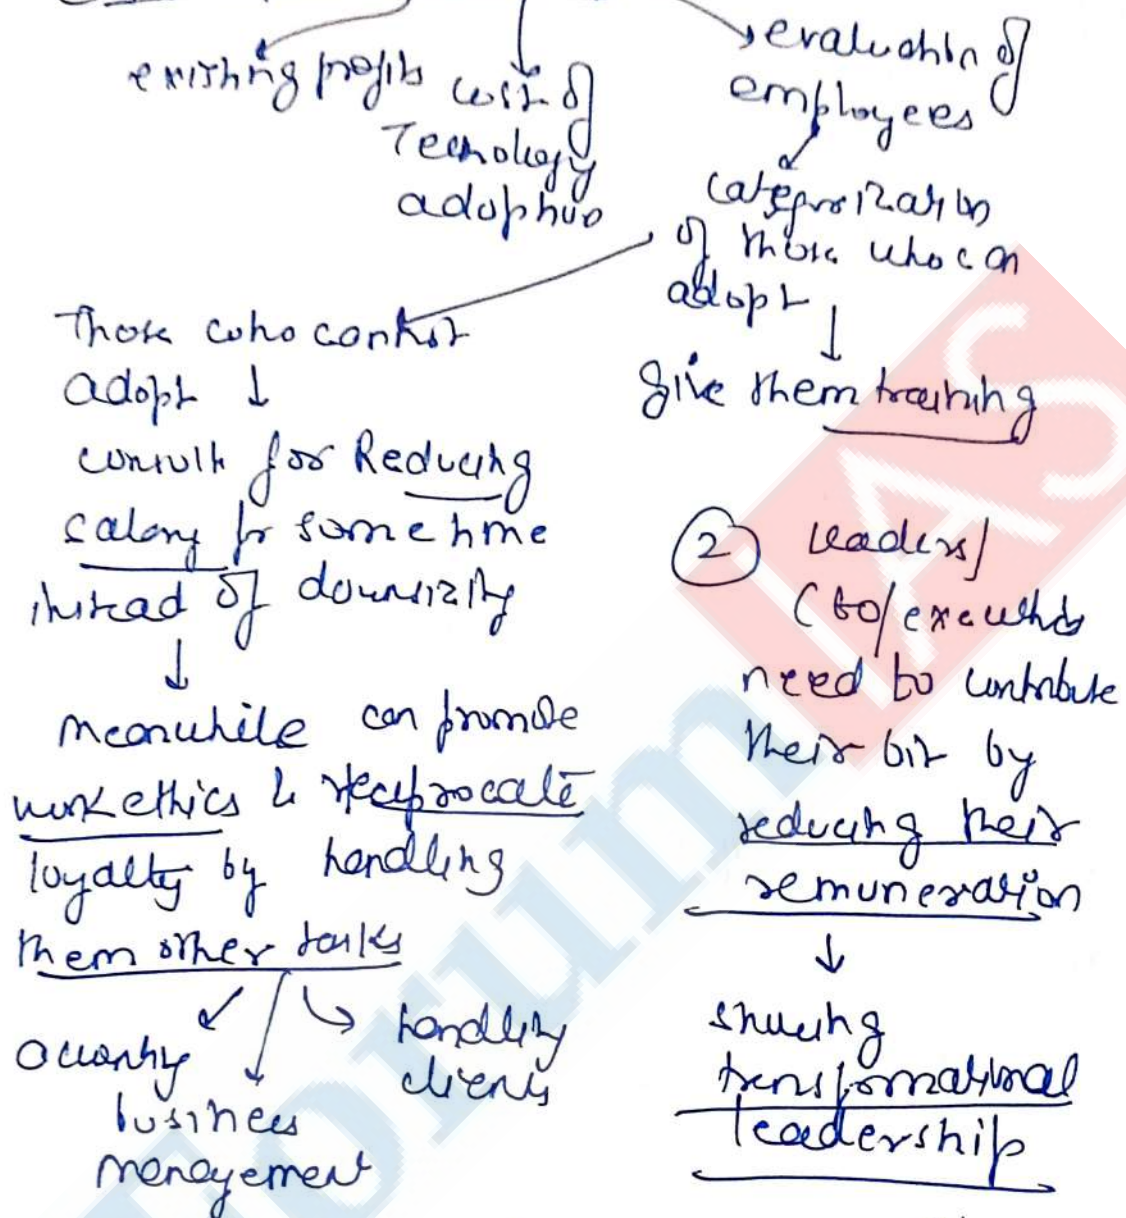 existing profits
cost of
Tecnology
adoption
evaluation of
employees
categorization
of those who can
adopt
give them training
Those who cannot
adopt
consult for Reducing
salary for some time
instead of downsizing
Meanwhile can promote
work ethics & reciprocate
loyalty by handling
them other tasks
business
management
handling
clients
2 leaders/
CEO/executives
need to contribute
their bit by
reducing their
remuneration
showing
transformational
leadership
Forum IAS